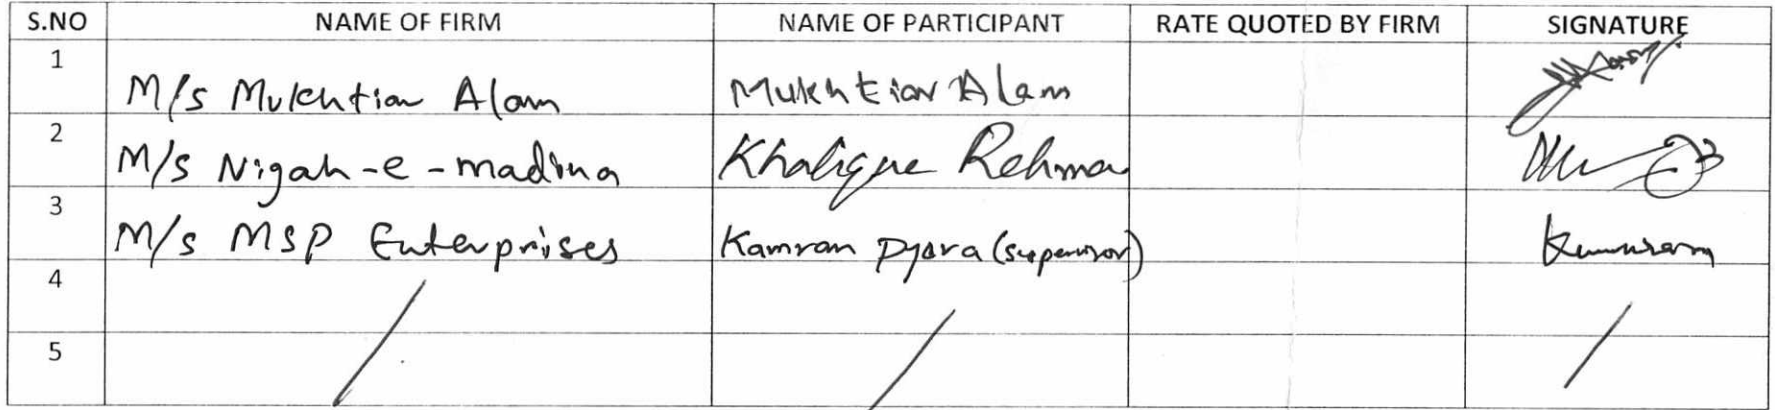 S.NO NAME OF FIRM NAME OF PARTICIPANT RATE QUOTED BY FIRM SIGNATURE
1 M/s Mukhtiar Alam Mukhtiar Alam
2 M/s Nigah-e-madina Khalique Rehma
3 M/s MSP Enterprises Kamran Pyara (supervisor) Kamran
4
5